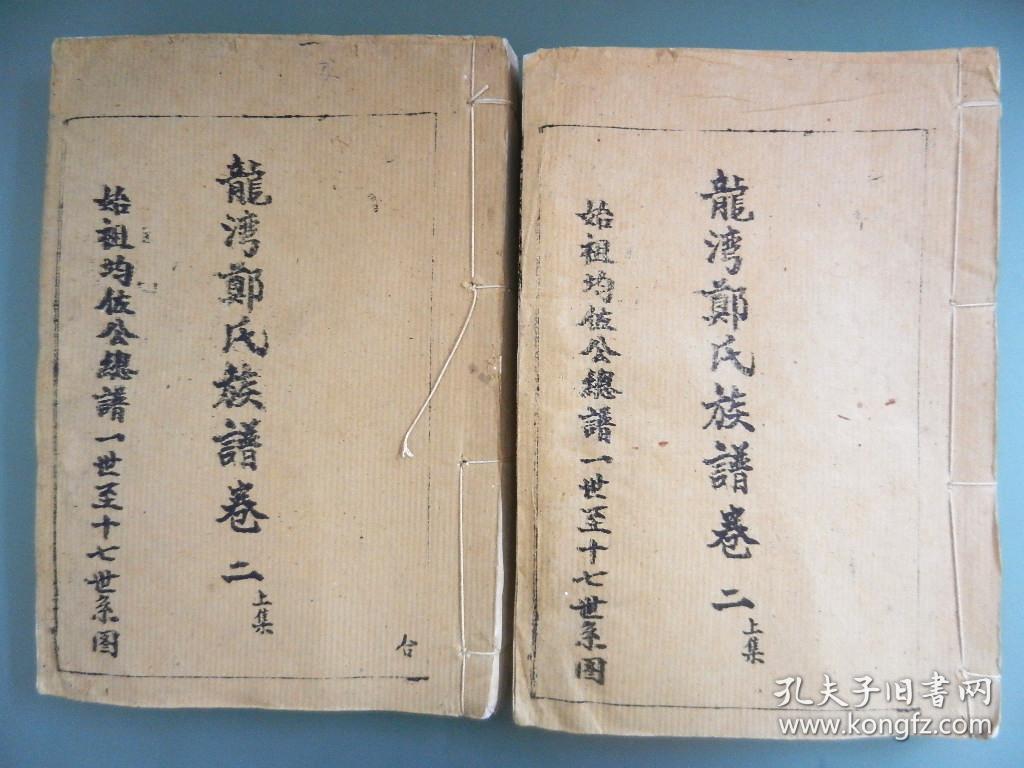 龍湾鄭氏族譜卷二上集
始祖均佐公總譜一世至十七世系图
合
龍湾鄭氏族譜卷二上集
始祖均佐公總譜一世至十七世系图
孔夫子旧书网
www.kongfz.com